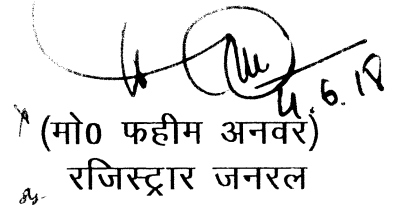 4.6.18
(मो0 फहीम अनवर)
रजिस्ट्रार जनरल